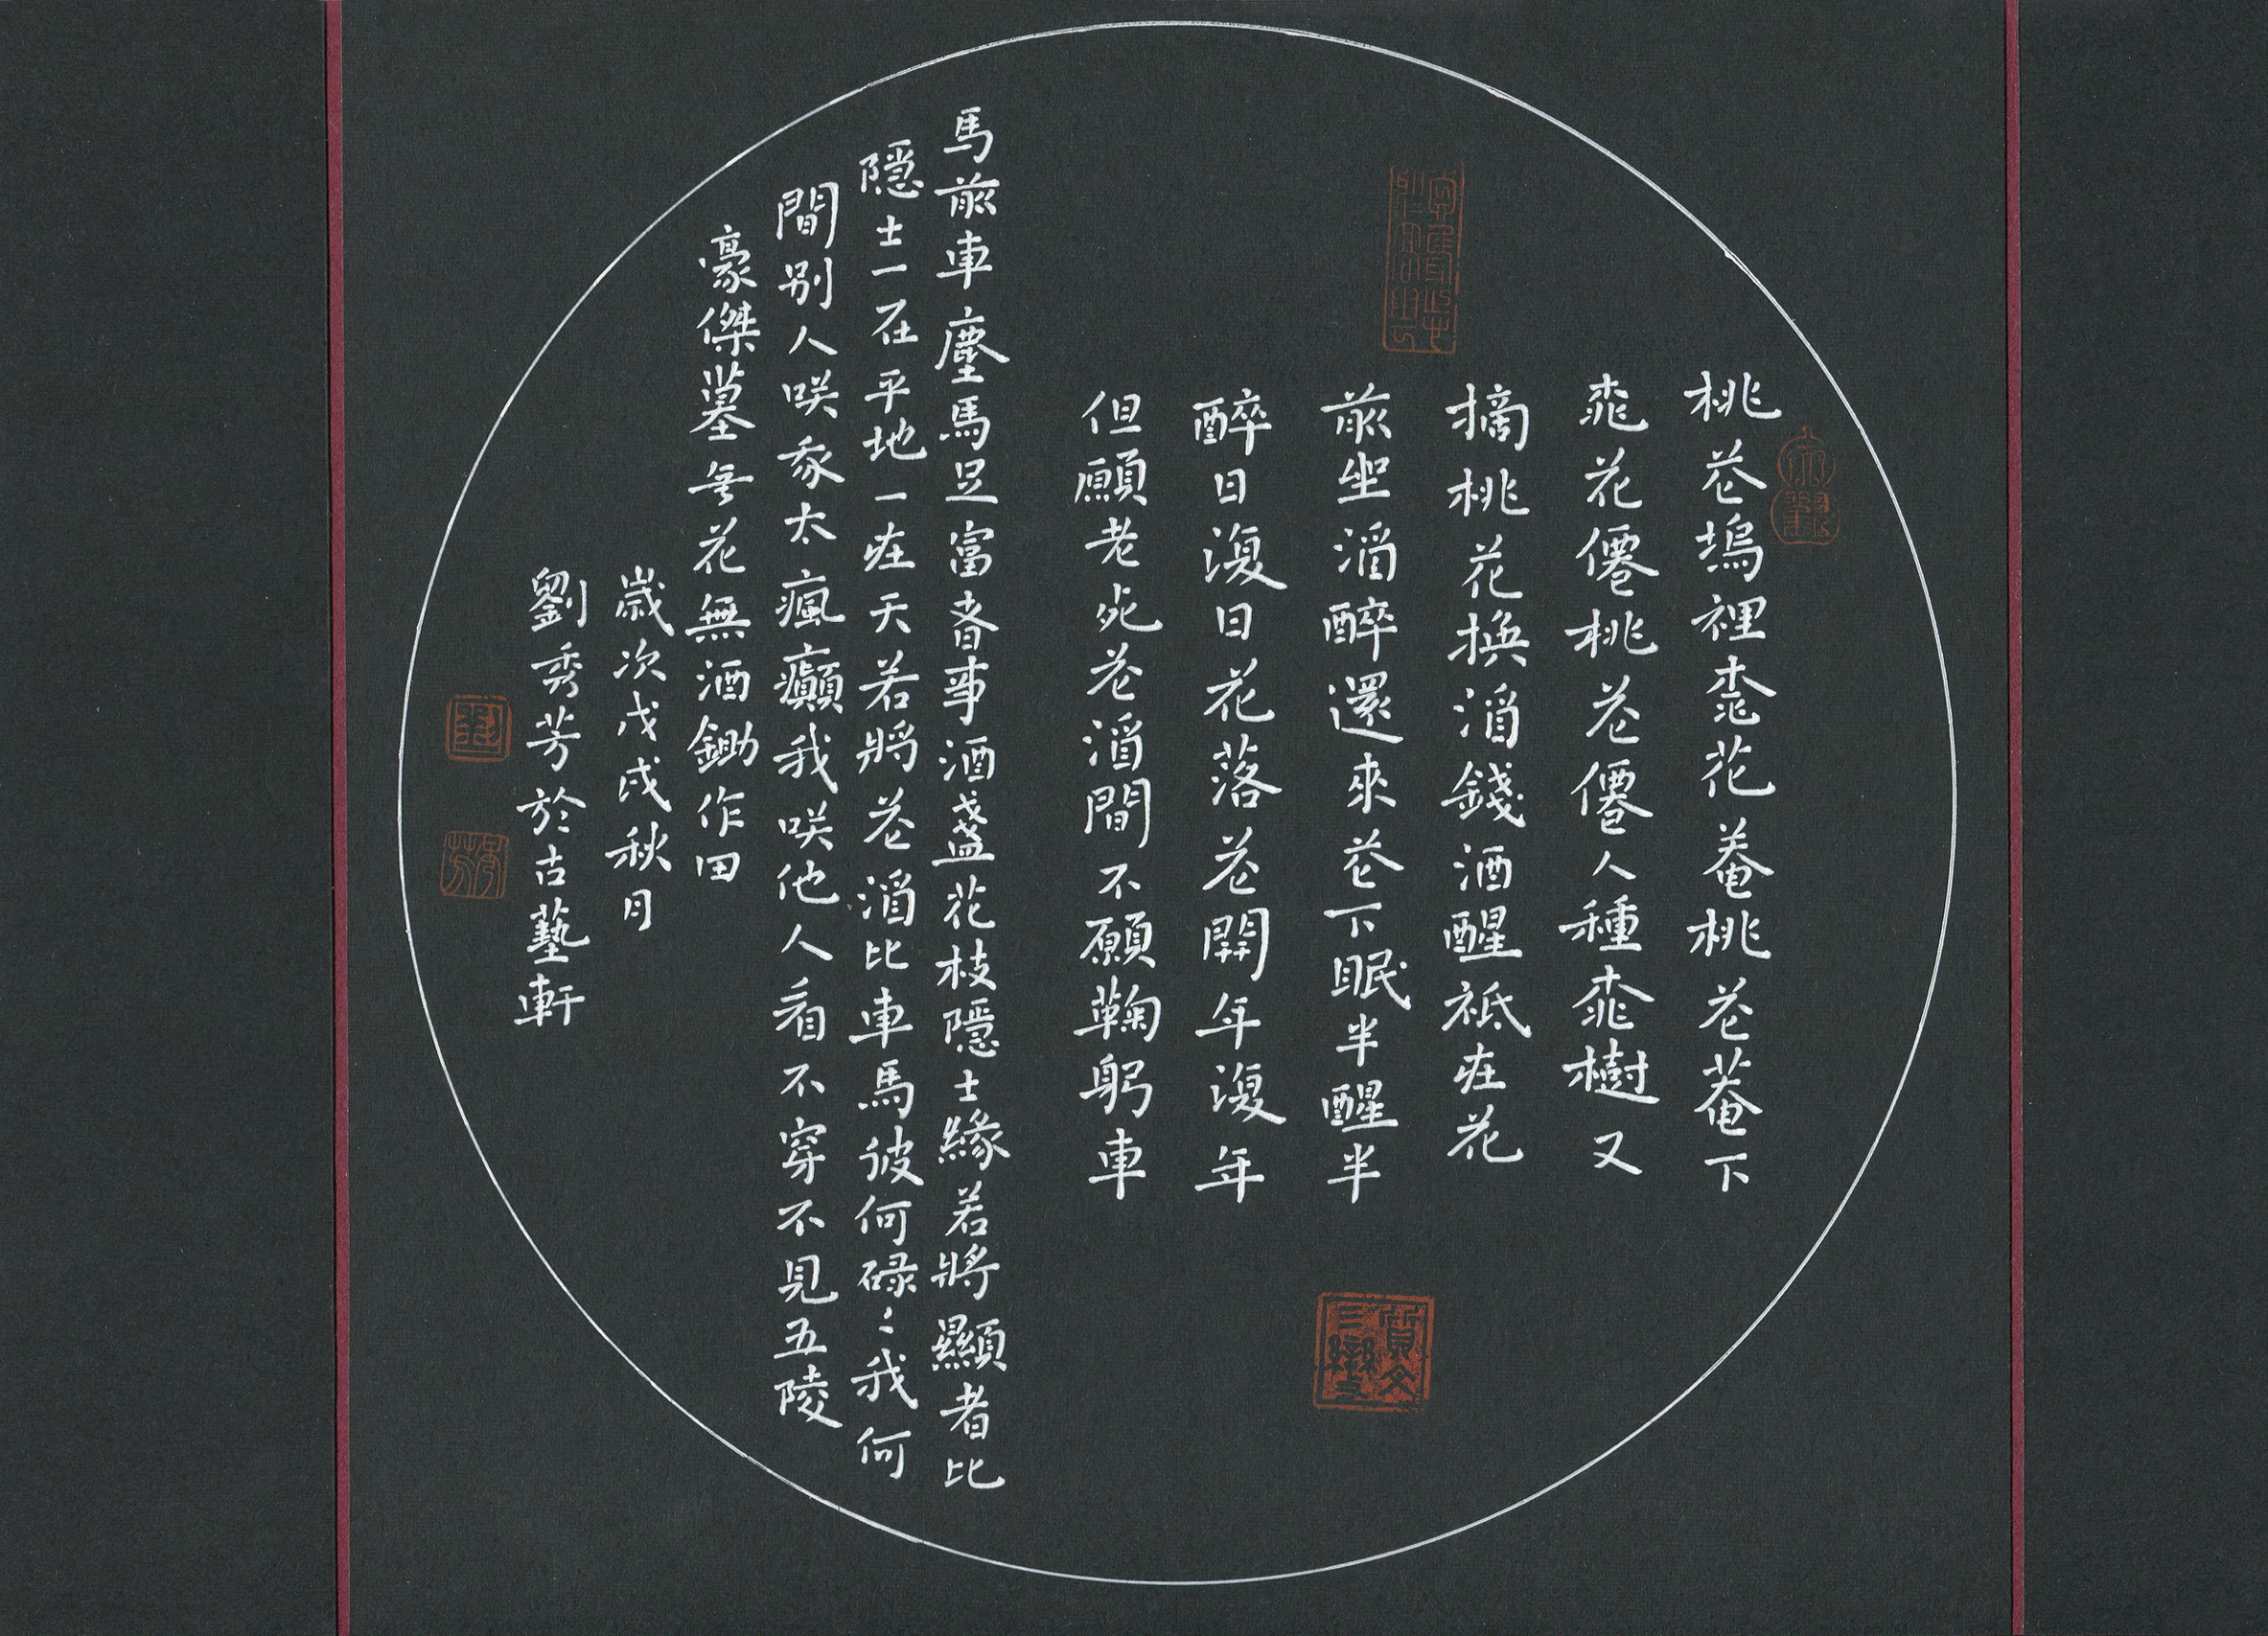 桃花塢裡桃花菴桃花菴下
桃花僊桃花僊人種桃樹又
摘桃花換酒錢酒醒祗在花
前坐酒醉還來花下眠半醒半
醉日復日花落花開年復年
但願老死花酒間不願鞠躬車
馬前車塵馬足富者事酒盞花枝隱士緣若將顯者比
隱士一在平地一在天若將花酒比車馬彼何碌〻我何
間别人咲我太瘋癲我咲他人看不穿不見五陵
豪傑墓無花無酒鋤作田
歲次戊戌秋月
劉秀芳於古藝軒